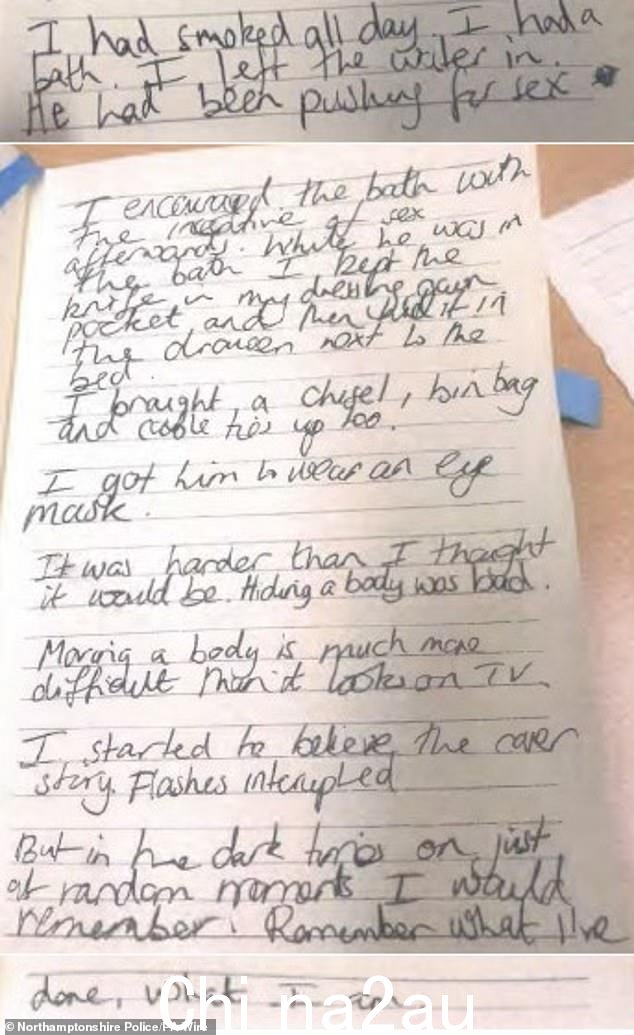 I had smoked all day. I had a
bath. I left the water in.
He had been pushing for sex
I encouraged the bath with
the incentive of sex
afterwards. While he was in
the bath I kept the
knife in my dressing gown
pocket and then hid it in
the drawer next to the
bed.
I brought a chisel, bin bag
and cable ties up too.
I got him to wear an eye
mask.
It was harder than I thought
it would be. Hiding a body was bad.
Moving a body is much more
difficult than it looks on TV.
I started to believe the cover
story. Flashes interupted
But in the dark times or just
at random moments I would
remember. Remember what I've
done, what I am
Chi na2au
© Northamptonshire Police/PA Wire